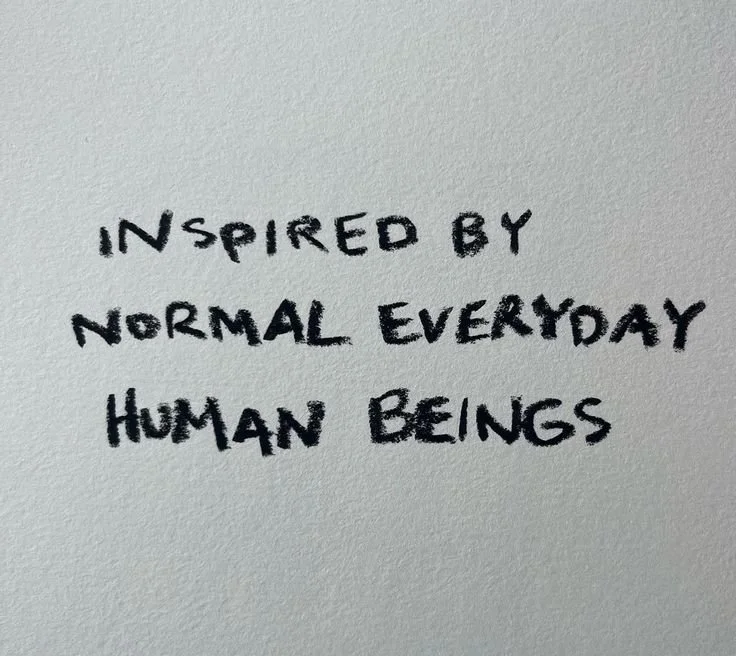 INSPIRED BY
NORMAL EVERYDAY
HUMAN BEINGS